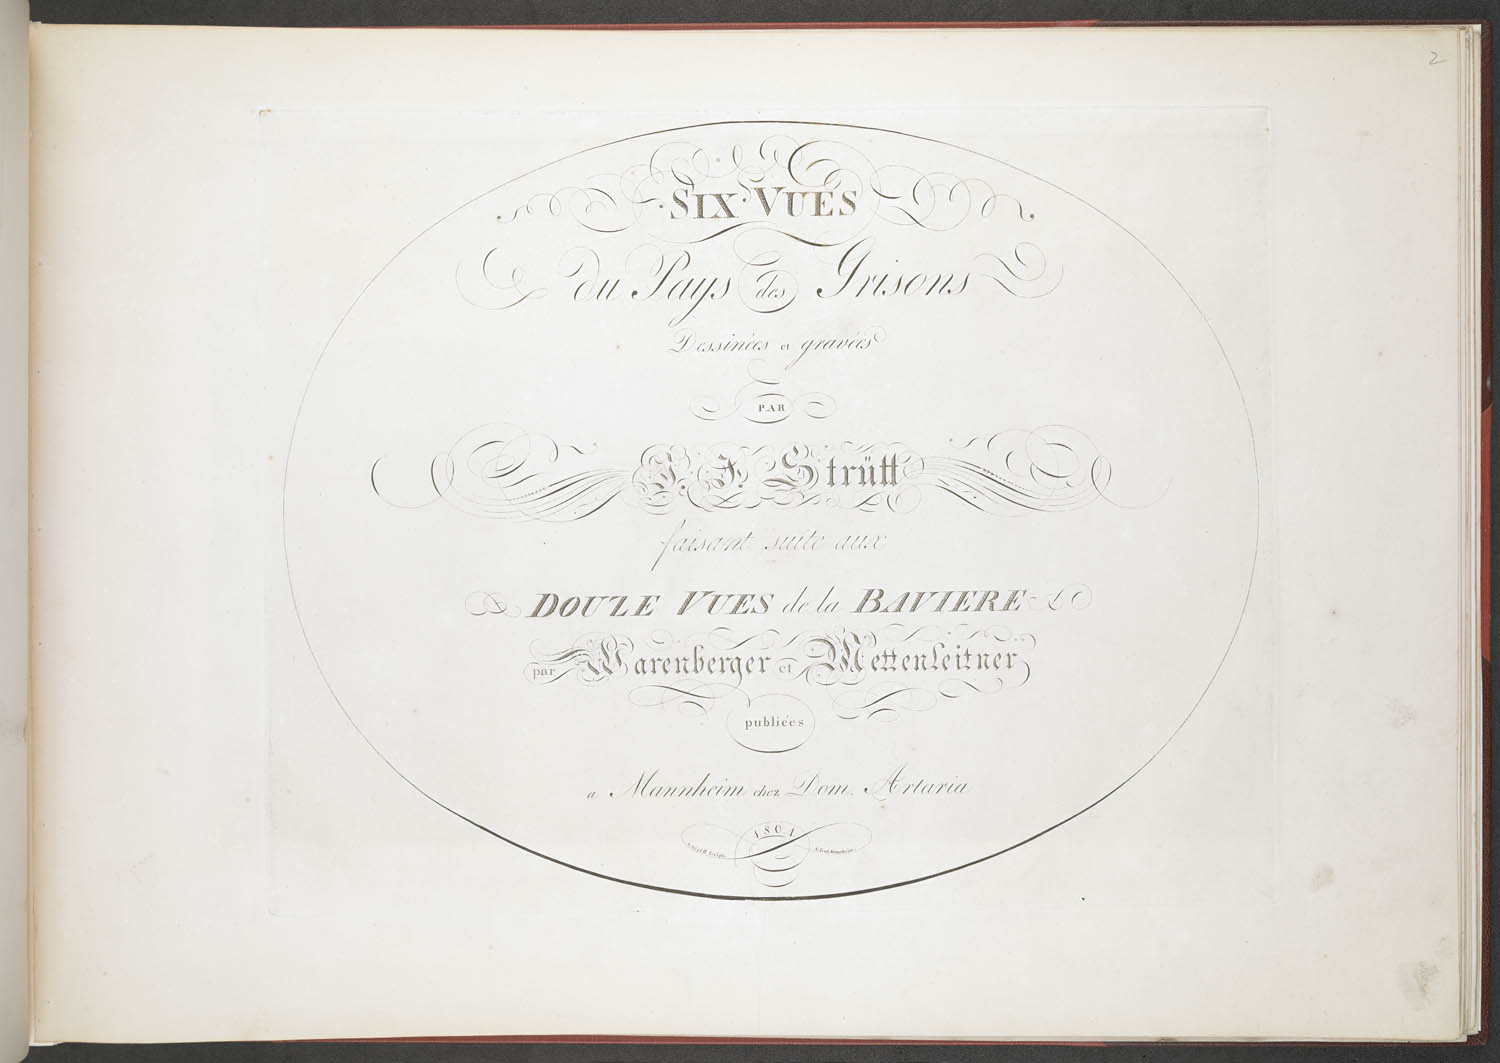 2
SIX · VUES
du Pays des Grisons
Dessinées et gravées
PAR
J. J. Strütt
faisant suite aux
DOUZE VUES de la BAVIERE
par Warenberger et Mettenleitner
publiées
a Mannheim chez Dom. Artaria
1804